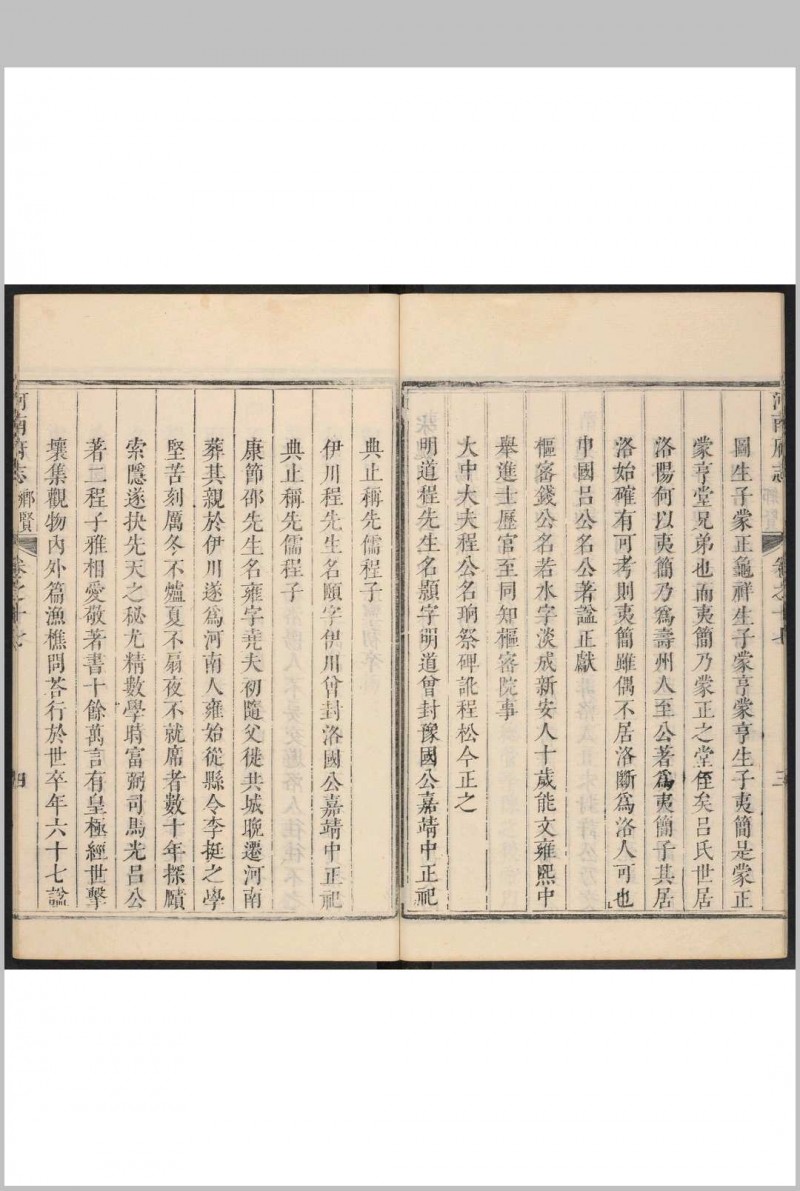 河南府志 鄉賢 卷之十七 三
圖生子蒙正龜祥生子蒙亨蒙亨生子夷簡是蒙正
蒙亨堂兄弟也而夷簡乃蒙正之堂侄矣呂氏世居
洛陽何以夷簡乃為壽州人至公著為夷簡子其居
洛始確有可考則夷簡雖偶不居洛斷為洛人可也
申國呂公名公著諡正獻
樞密錢公名若水字淡成新安人十歲能文雍熙中
舉進士歷官至同知樞密院事
大中大夫程公名珦祭碑訛程松今正之
明道程先生名顥字明道曾封豫國公嘉靖中正祀
典止稱先儒程子
伊川程先生名頤字伊川曾封洛國公嘉靖中正祀
典止稱先儒程子
康節邵先生名雍字堯夫初隨父徙共城晚遷河南
葬其親於伊川遂爲河南人雍始從縣令李挺之學
堅苦刻厲冬不爐夏不扇夜不就席者數十年探賾
索隱遂抉先天之秘尤精數學時富弼司馬光呂公
著二程子雅相愛敬著書十餘萬言有皇極經世擊
壤集觀物內外篇漁樵問荅行於世卒年六十七諡
河南府志 鄉賢 卷之十七 四